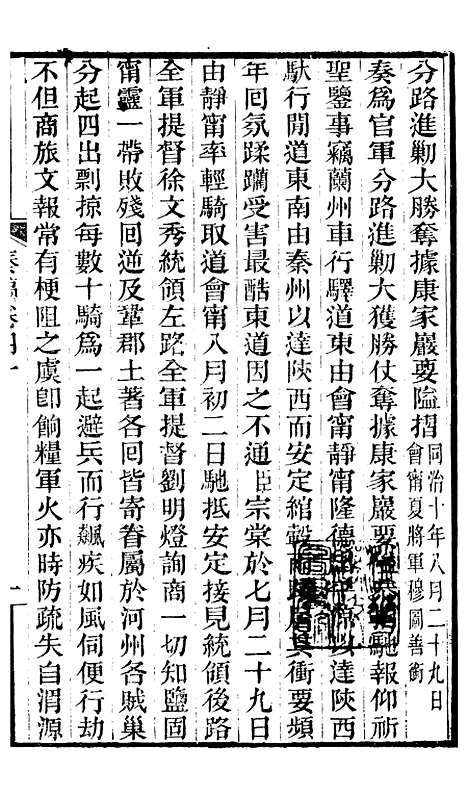 分路進勦大勝奪據康家巖要隘摺同治十年八月二十九日
會甯夏將軍穆圖善銜
奏爲官軍分路進勦大獲勝仗奪據康家巖要馳報仰祈
聖鑒事竊蘭州車行驛道東由會甯靜甯隆德以達陝西
馱行間道東南由秦州以達陝西而安定綰轂其衝要頻
年回氛蹂躪受害最酷東道因之不通臣宗棠於七月二十九日
由靜甯率輕騎取道會甯八月初二日馳抵安定接見統領後路
全軍提督徐文秀統領左路全軍提督劉明燈詢商一切知鹽固
甯靈一帶敗殘回逆及鞏郡土著各回皆寄眷屬於河州各賊巢
分起四出剽掠每數十騎爲一起避兵而行飆疾如風伺便行劫
不但商旅文報常有梗阻之虞卽餉糧軍火亦時防疏失自渭源
奏稿卷四十 一